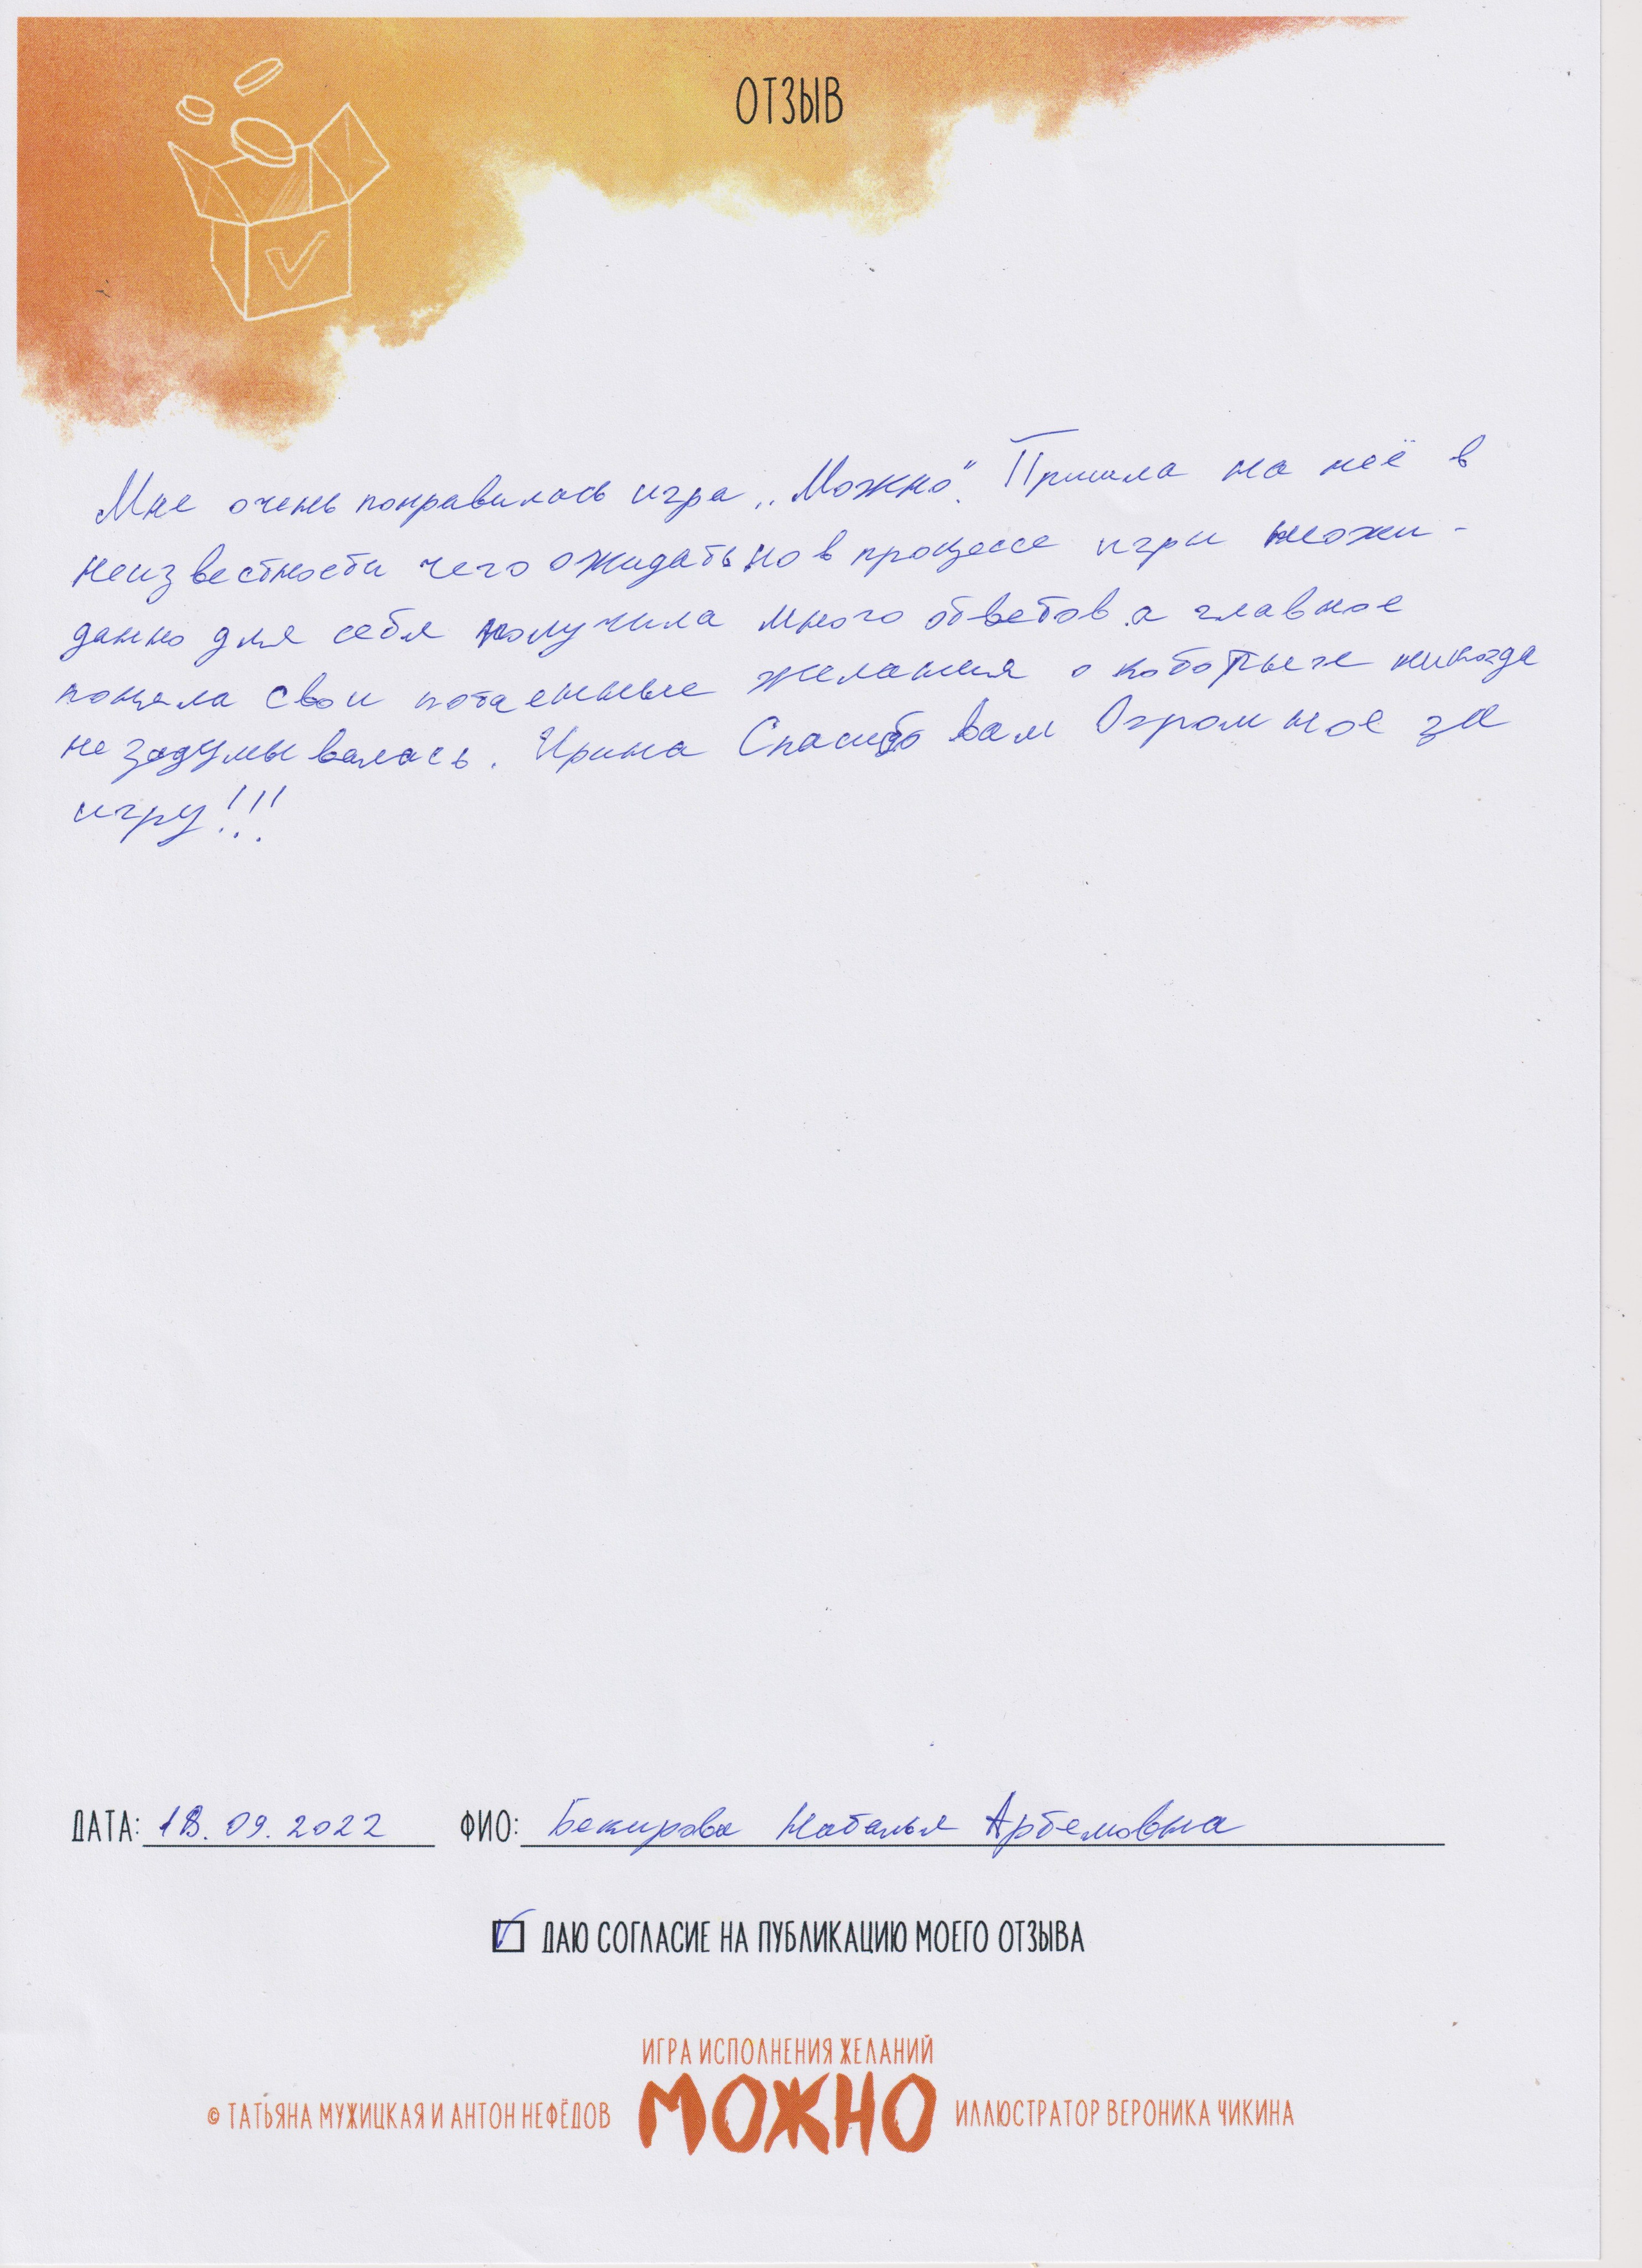 ОТЗЫВ
Мне очень понравилась игра „Можно". Пришла на неё в
неизвестности чего ожидать но в процессе игры неожи-
данно для себя получила много ответов, а главное
поняла свои потаенные желания о которых никогда
не задумывалась. Ирина Спасибо вам Огромное за
игру!!!
ДАТА: 18.09.2022 ФИО: Бекирова Наталья Артемовна
ДАЮ СОГЛАСИЕ НА ПУБЛИКАЦИЮ МОЕГО ОТЗЫВА
ИГРА ИСПОЛНЕНИЯ ЖЕЛАНИЙ
© ТАТЬЯНА МУЖИЦКАЯ И АНТОН НЕФЁДОВ МОЖНО ИЛЛЮСТРАТОР ВЕРОНИКА ЧИКИНА